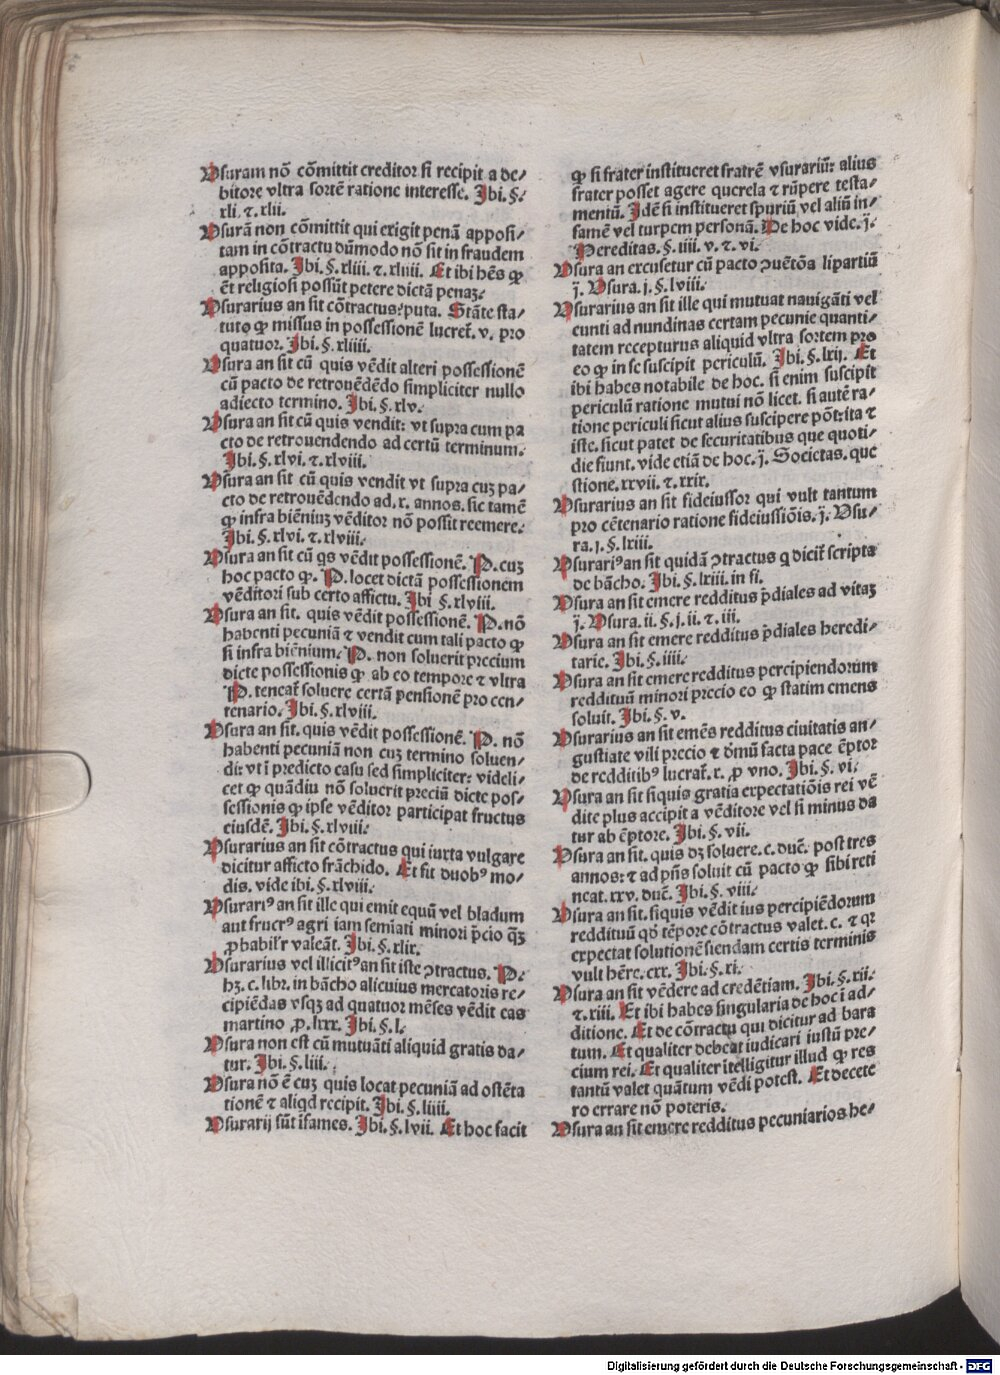 Vsuram nō cōmittit creditor si recipit a de/
bitore vltra sortē ratione interesse. Ibi. §.
xli. ⁊. xlii.
Vsurā non cōmittit qui exigit penā apposi/
tam in cōtractu dūmodo nō sit in fraudem
apposita. Ibi. §. xliii. ⁊. xluii. Et ibi hēs ꝙ
ēt religiosi possūt petere dictā penaꝫ.
Vsurarius an sit cōtractus: puta. Stāte sta/
tuto ꝙ missus in possessionē lucret̄. v. pro
quatuor. Ibi. §. xliiii.
Vsura an sit cū quis vēdit alteri possessionē
cū pacto de retrouēdēdo simpliciter nullo
adiecto termino. Ibi. §. xlv.
Vsura an sit cū quis vendit: vt supra cum pa
cto de retrouendendo ad certū terminum.
Ibi. §. xlvi. ⁊. xlviii.
Vsura an sit cū quis vendit vt supra cuꝫ pa/
cto de retrouēdendo ad. x. annos. sic tamē
ꝙ infra biēniuꝫ vēditor nō possit reemere.
Ibi. §. xlvi. ⁊. xlviii.
Vsura an sit cū qs vēdit possessionē. P. cuꝫ
hoc pacto ꝙ. P. locet dictā possessionem
vēditori sub certo affictu. Ibi §. xlviii.
Vsura an sit. quis vēdit possessionē. P. nō
habenti pecuniā ⁊ vendit cum tali pacto ꝙ
si infra biēnium. P. non soluerit precium
dicte possessionis ꝙ ab eo tempore ⁊ vltra
P. teneat̄ soluere certā pensionē pro cen/
tenario. Ibi. §. xlviii.
Vsura an sit. quis vēdit possessionē. P. nō
habenti pecuniā non cuꝫ termino soluen/
di: vt ī predicto casu sed simpliciter: videli/
cet ꝙ quādiu nō soluerit preciū dicte pos/
sessionis ꝙ ipse vēditor participat fructus
eiusdē. Ibi. §. xlviii.
Vsurarius an sit cōtractus qui iuxta vulgare
dicitur afficto frāchido. Et sit duobꝰ mo/
dis. vide ibi. §. xlviii.
Vsurariꝰ an sit ille qui emit equū vel bladum
aut fructꝰ agri iam semīati minori p̄cio qꝫ
ꝓbabil'r valeāt. Ibi. §. xlix.
Vsurarius vel illicitꝰ an sit iste ꝯtractus. P.
hꝫ. c. libr. in bācho alicuius mercatoris re/
cipiēdas vsqꝫ ad quatuor mēses vēdit eas
martino ꝓ. lxxx. Ibi. §. l.
Vsura non est cū mutuāti aliquid gratis da/
tur. Ibi. §. liii.
Vsura nō ē cuꝫ quis locat pecuniā ad ostēta
tionē ⁊ aliqd recipit. Ibi. §. liiii.
Vsurarij sūt īfames. Ibi. §. lvii. Et hoc facit
ꝙ si frater institueret fratrē vsurariū: alius
frater posset agere querela ⁊ rūpere testa/
mentū. Idē si institueret spuriū vel aliū in/
famē vel turpem personā. De hoc vide. j̄.
Hereditas. §. iiii. v. ⁊. vi.
Vsura an excusetur cū pacto ꝯuētōa lipartiū
j̄. Vsura. j. §. lviii.
Vsurarius an sit ille qui mutuat nauigāti vel
eunti ad nundinas certam pecunie quanti/
tatem recepturus aliquid vltra sortem pro
eo ꝙ in se suscipit periculū. Ibi. §. lxij. Et
ibi habes notabile de hoc. si enim suscipit
periculū ratione mutui nō licet. si autē ra/
tione periculi sicut alius suscipere pōt: ita ⁊
iste. sicut patet de securitatibus que quoti/
die fiunt. vide etiā de hoc. j̄. Societas. que
stione. xxvii. ⁊. xxix.
Vsurarius an sit fideiussor qui vult tantum
pro cētenario ratione fideiussiōis. j̄. Vsu/
ra. j. §. lxiii.
Vsurariꝰ an sit quidā ꝯtractus q dicit̄ scripta
de bācho. Ibi. §. lxiii. in fi.
Vsura an sit emere redditus p̄diales ad vitaꝫ
j̄. Vsura. ii. §. j. ii. ⁊. iii.
Vsura an sit emere redditus p̄diales heredi/
tarie. Ibi. §. iiii.
Vsura an sit emere redditus percipiendorum
reddituū minori precio eo ꝙ statim emens
soluit. Ibi. §. v.
Vsurarius an sit emēs redditus ciuitatis an/
gustiate vili precio ⁊ dōmū facta pace ēptor
de redditibꝰ lucrat̄. x. ꝓ vno. Ibi. §. vi.
Vsura an sit siquis gratia expectatiōis rei vē
dite plus accipit a vēditore vel si minus da
tur ab ēptore. Ibi. §. vii.
Vsura an sit. quis dꝫ soluere. c. duc̄. post tres
annos: ⁊ ad p̄ns soluit cū pacto ꝙ sibi reti
neat. xxv. duc̄. Ibi. §. viii.
Vsura an sit. siquis vēdit ius percipiēdorum
reddituū qd̄ tēpore cōtractus valet. c. ⁊ qꝛ
expectat solutionē fiendam certis terminis
vult hēre. cxx. Ibi. §. xi.
Vsura an sit vēdere ad credētiam. Ibi. §. xii.
⁊. xiii. Et ibi habes singularia de hoc ī ad/
ditione. Et de cōtractu qui dicitur ad bara
tum. Et qualiter debeat iudicari iustū pre/
cium rei. Et qualiter ītelligitur illud ꝙ res
tantū valet quātum vēdi potest. Et de cete
ro errare nō poteris.
Vsura an sit emere redditus pecuniarios he/
Digitalisierung gefördert durch die Deutsche Forschungsgemeinschaft - DFG